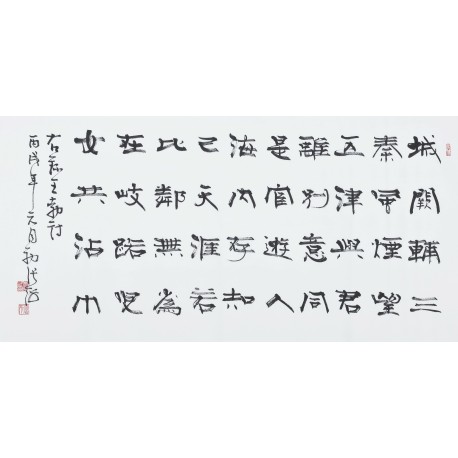 城闕輔三
秦風煙望
五津與君
離别意同
是宦遊人
海内存知
己天涯若
比鄰無為
在岐路兒
女共沾巾
右录王勃诗
丙戌年元月